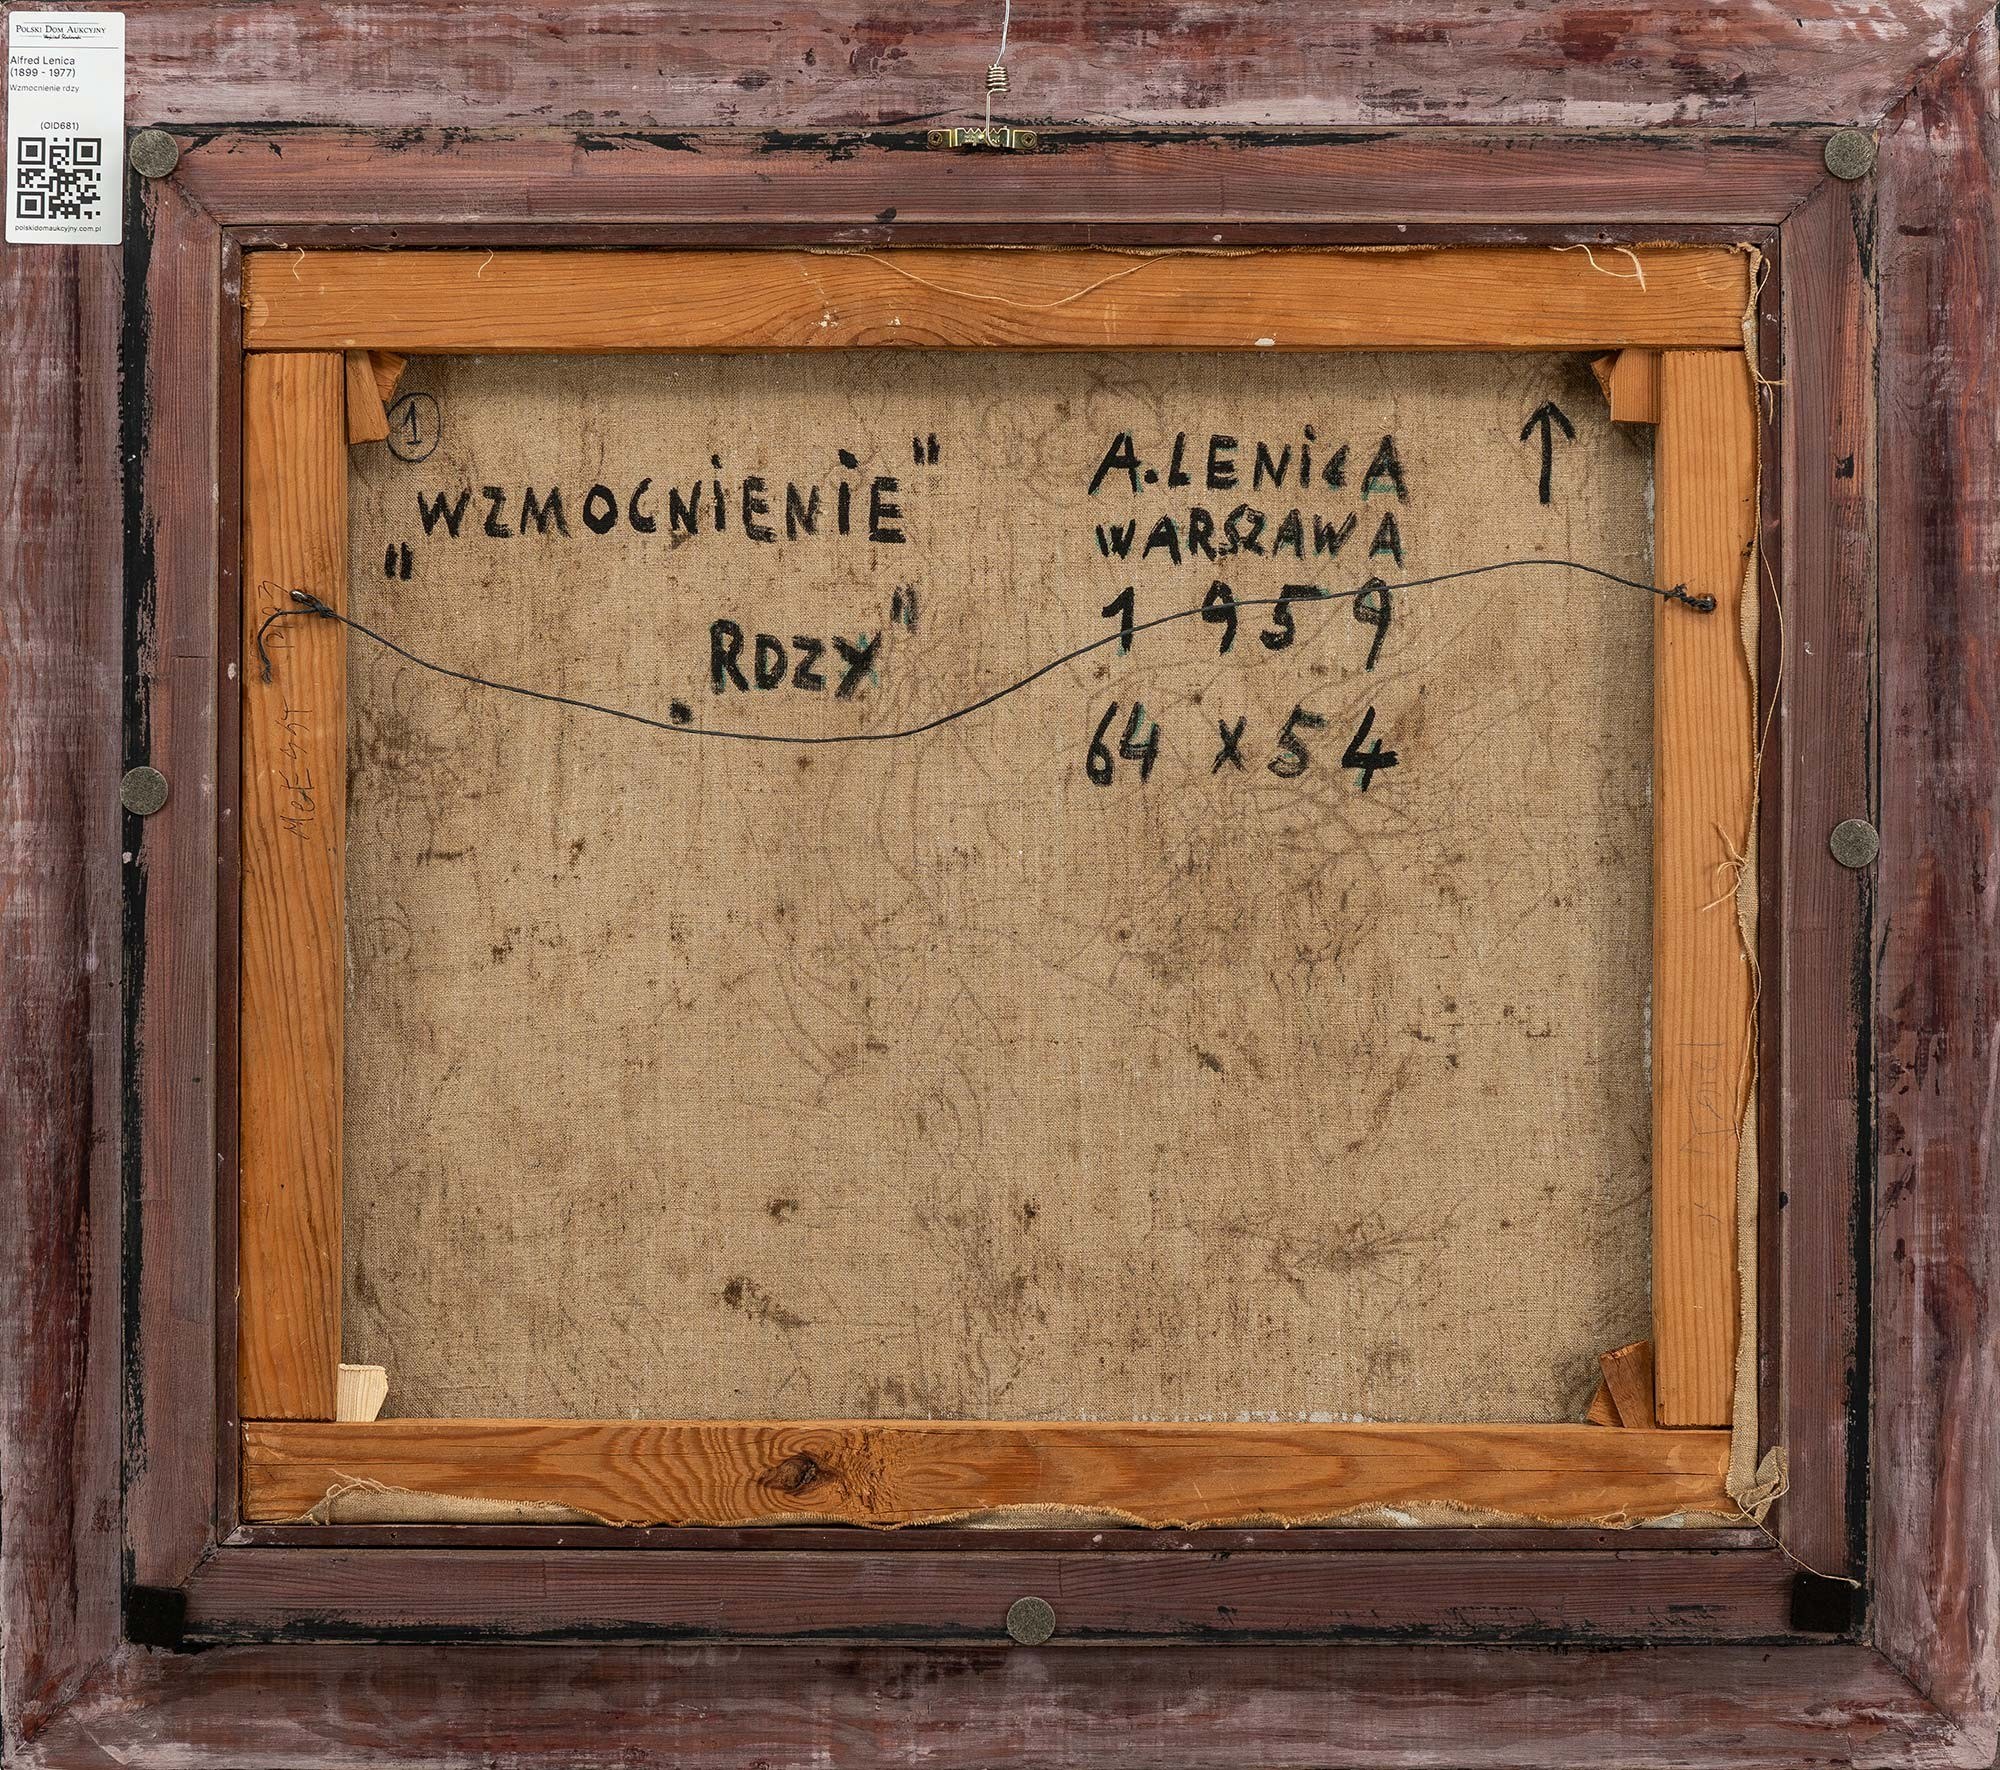 POLSKI DOM AUKCYJNY
Alfred Lenica
(1899 - 1977)
Wzmocnienie rdzy
(OID681)
polskidomaukcyjny.com.pl
1
„WZMOCNiENiE"
RDZY"
A. LENiCA
WARSZAWA
1959
64 x 54